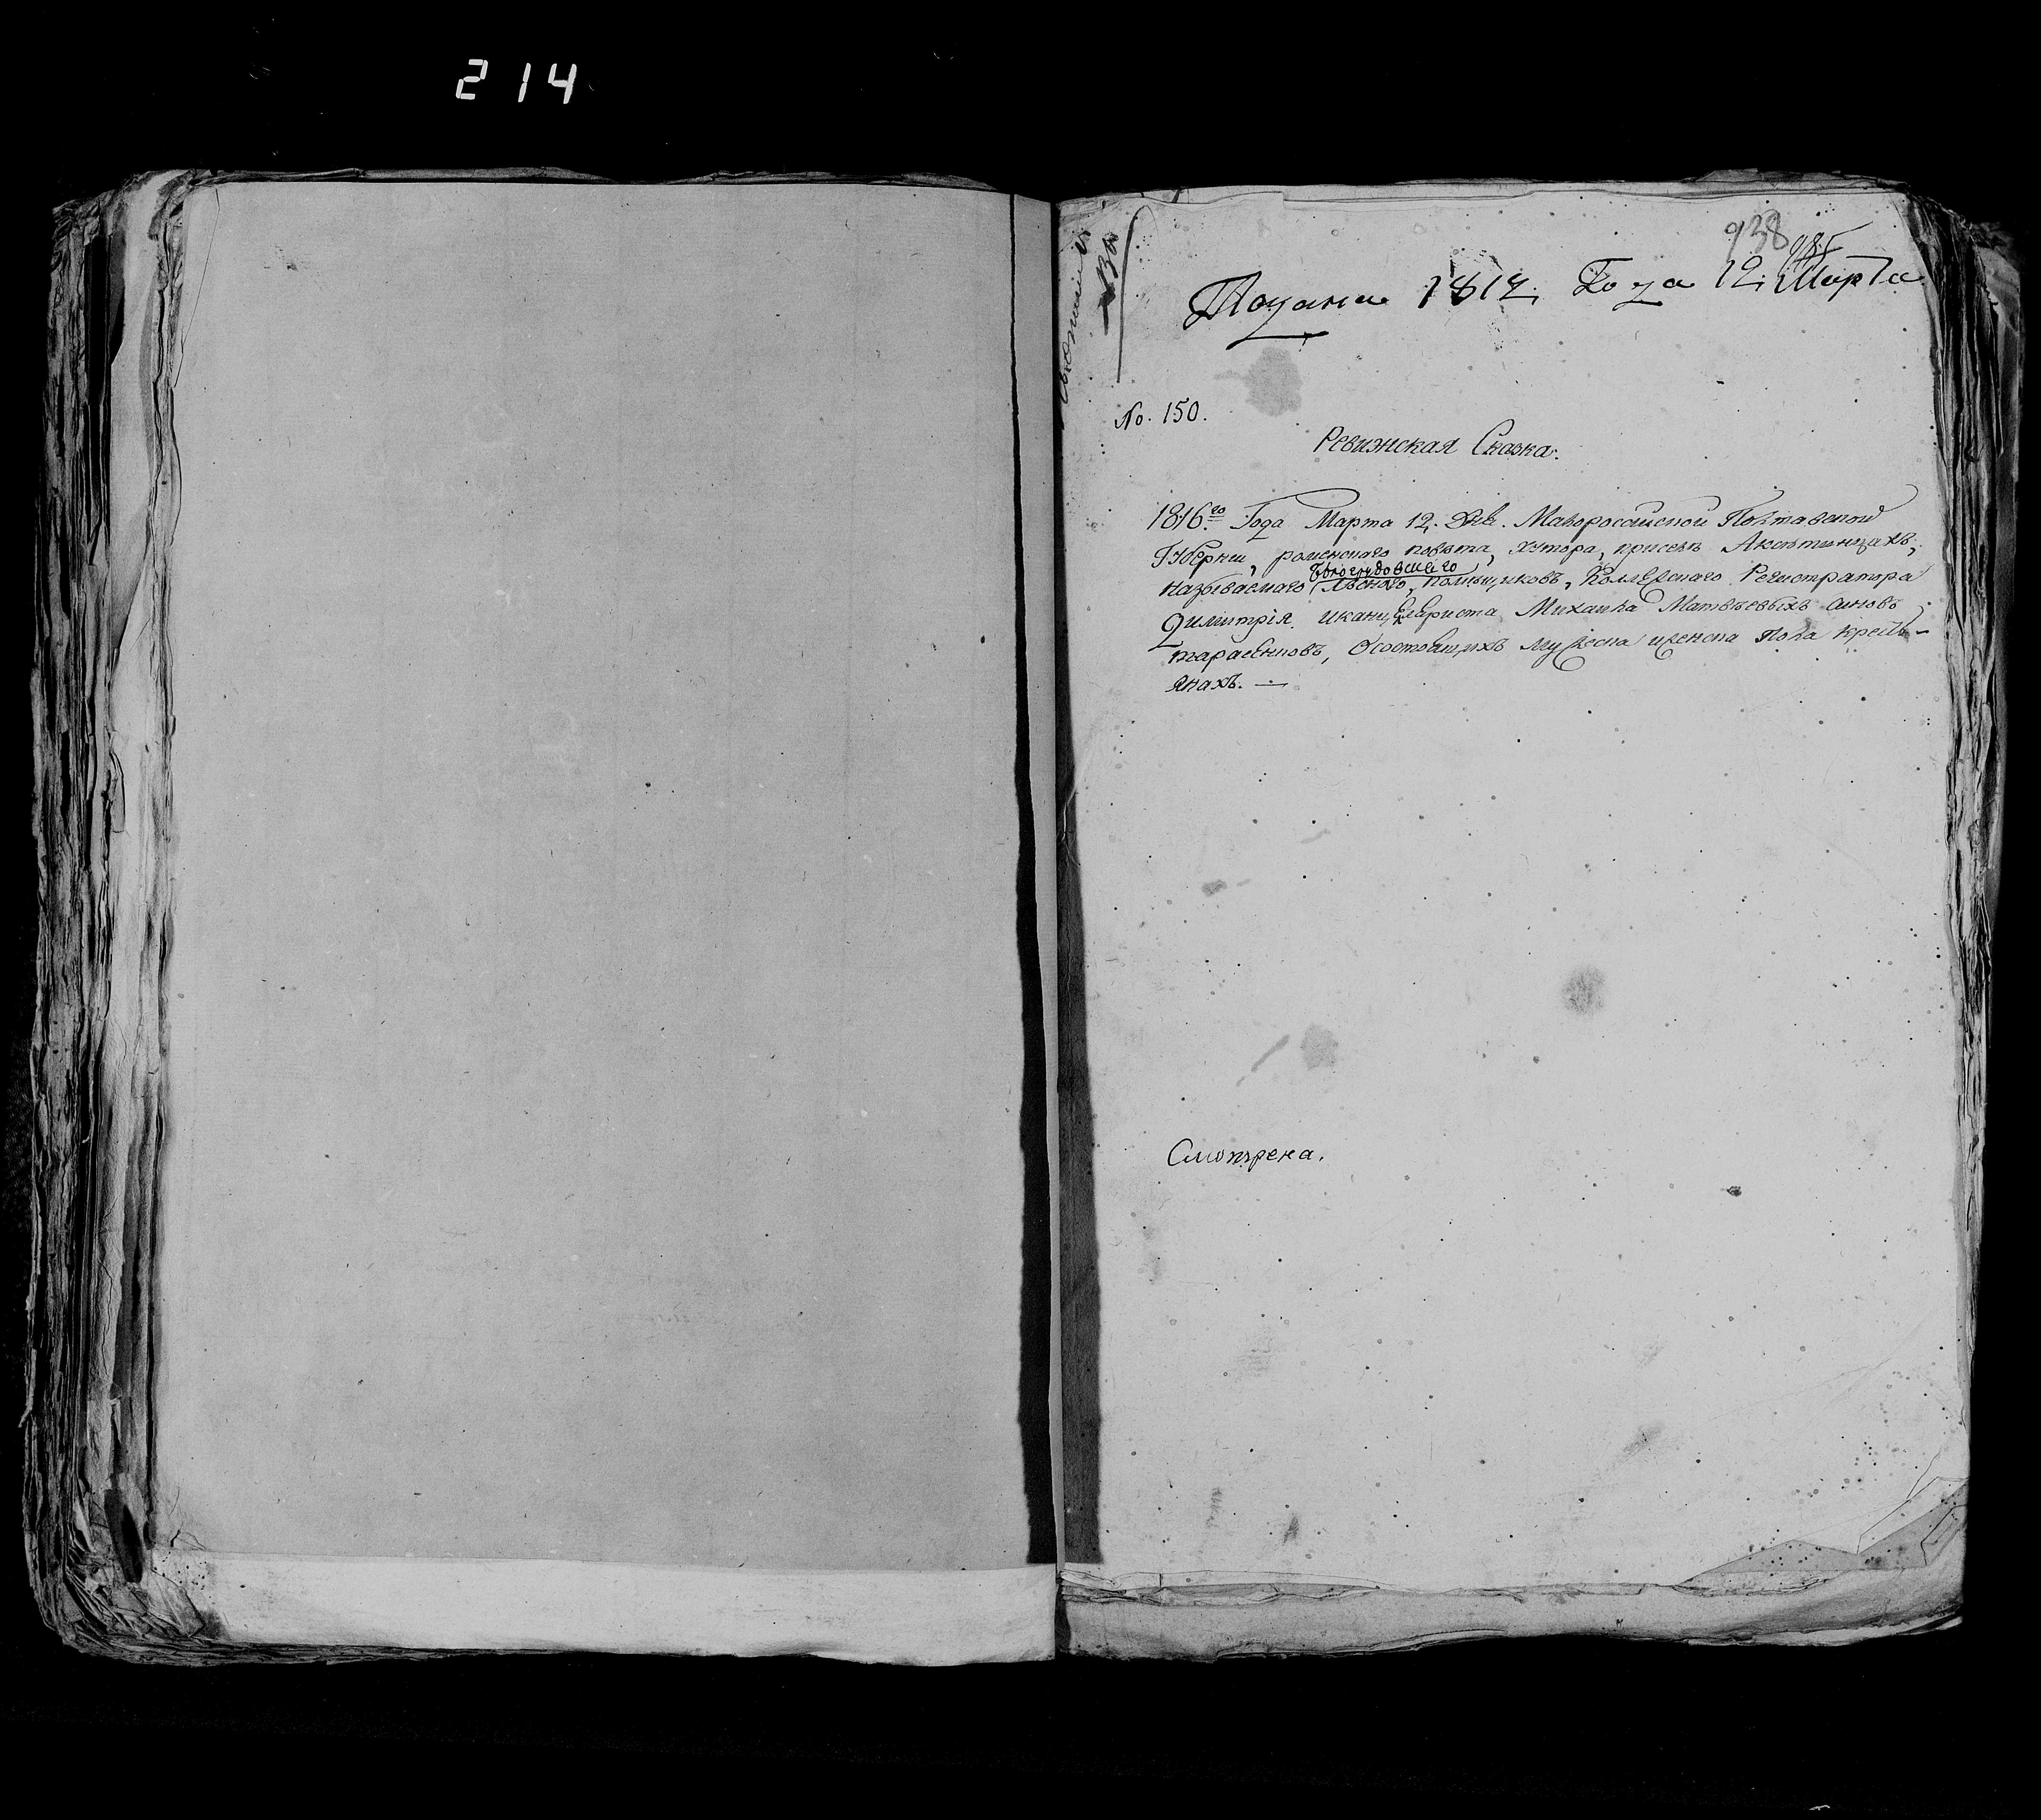 214
938
985
Подана 1812. Года 12. Марта
No. 150.
Ревижская Сказка.
1816го Года Марта 12. Дня. Малороссийской Полтавской
Губернии, роменского повета, хутора, присель Аксютинцахъ,
называемого Лѣсного, помѣщиковъ, Коллежского Регистратора
Димитрія иканцеляриста Михаила Матвѣевыхъ синовъ
тарасенковъ, Осостоящихъ мужеска иженска Пола крестъ-
янахъ. —
Смотрена.